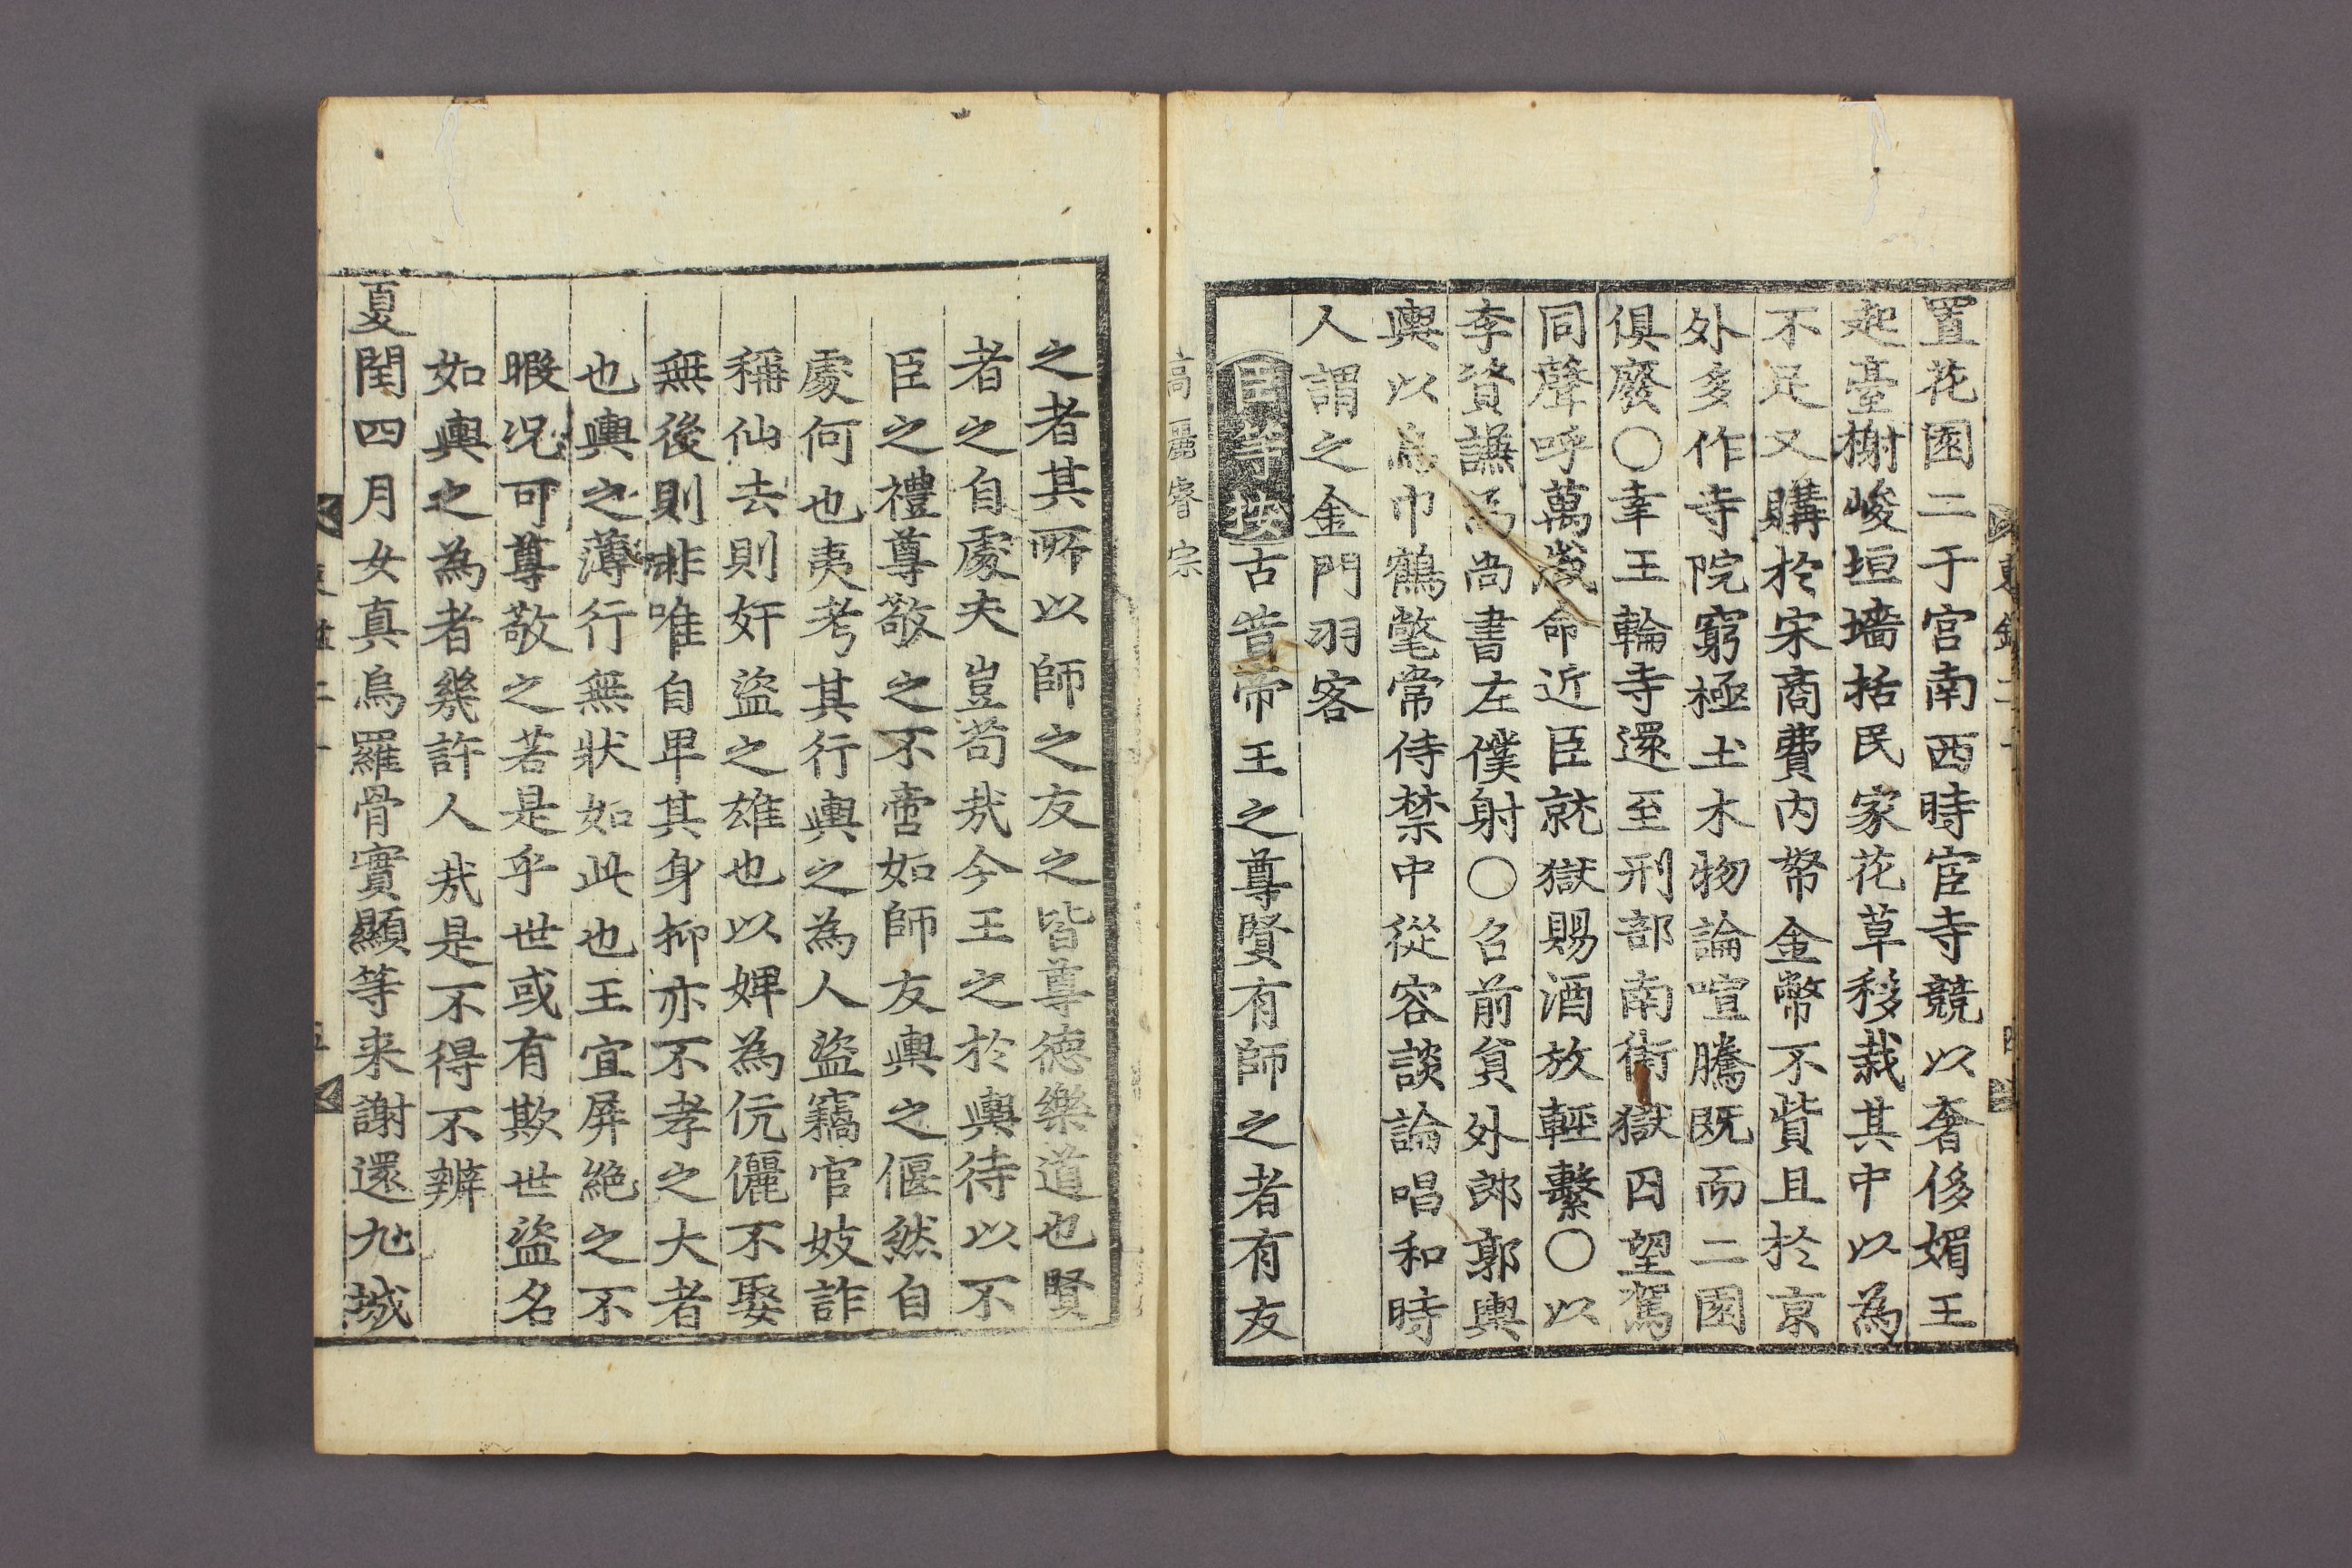 置花園二于宮南西時宦寺競以奢侈媚王
起臺榭峻垣墻括民家花草移栽其中以為
不足又購於宋商費內帑金幣不貲且於京
外多作寺院窮極土木物論喧騰既而二園
俱廢○幸王輪寺還至刑部南街獄囚望駕
同聲呼萬歲命近臣就獄賜酒放輕繫○以
李資諴為尚書左僕射○召前員外郎郭輿
輿以烏巾鶴氅常侍禁中從容談論唱和時
人謂之金門羽客
臣等按古昔帝王之尊賢有師之者有友
高麗睿宗
之者其所以師之友之皆尊德樂道也賢
者之自處夫豈苟哉今王之於輿待以不
臣之禮尊敬之不啻如師友輿之偃然自
處何也夷考其行輿之為人盜竊官妓詐
稱仙去則奸盜之雄也以婢為伉儷不娶
無後則非唯自卑其身抑亦不孝之大者
也輿之薄行無狀如此也王宜屏絶之不
暇况可尊敬之若是乎世或有欺世盜名
如輿之為者幾許人哉是不得不辨
夏閏四月女真烏羅骨實顯等来謝還九城